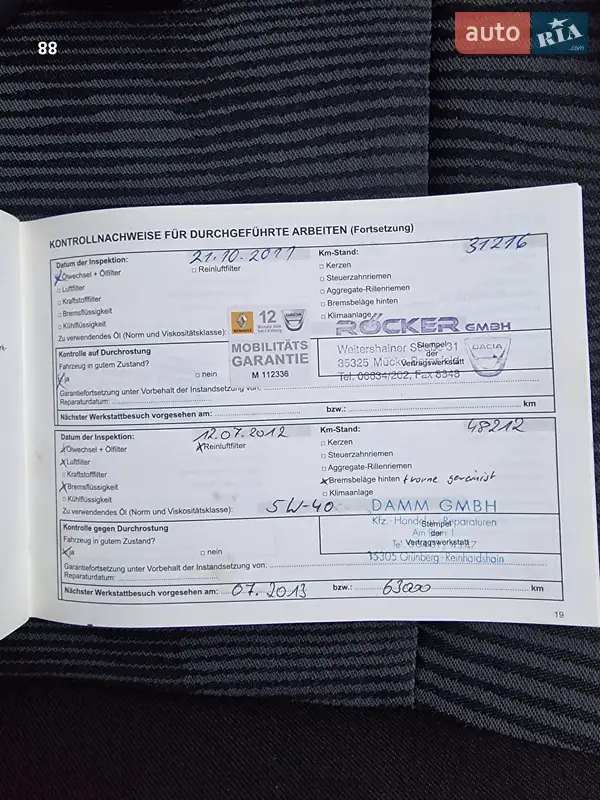 88
auto RIA .com
rk-
KONTROLLNACHWEISE FÜR DURCHGEFÜHRTE ARBEITEN (Fortsetzung)
Datum der Inspektion: 21.10.2011 Km-Stand: 31216
x Ölwechsel + Ölfilter □ Reinluftfilter □ Kerzen
□ Luftfilter □ Steuerzahnriemen
□ Kraftstofffilter □ Aggregate-Rillenriemen
□ Bremsflüssigkeit □ Bremsbeläge hinten
□ Kühlflüssigkeit □ Klimaanlage
Zu verwendendes Öl (Norm und Viskositätsklasse):
RENAULT 12 DACIA
MOBILITÄTS
GARANTIE
M 112336
RÖCKER GMBH
Weitershainer 31
35325 Mücke
Tel. 06634/202, Fax 8348
Stempel
der
Vertragswerkstatt
DACIA
Kontrolle auf Durchrostung
Fahrzeug in gutem Zustand?
x ja □ nein
Garantiefortsetzung unter Vorbehalt der Instandsetzung von:
Reparaturdatum:
Nächster Werkstattbesuch vorgesehen am: bzw.: km
Datum der Inspektion: 12.07.2012 Km-Stand: 48212
x Ölwechsel + Ölfilter x Reinluftfilter □ Kerzen
x Luftfilter □ Steuerzahnriemen
□ Kraftstofffilter □ Aggregate-Rillenriemen
x Bremsflüssigkeit x Bremsbeläge hinten + vorne gereinigt
□ Kühlflüssigkeit □ Klimaanlage
Zu verwendendes Öl (Norm und Viskositätsklasse): 5W-40
DAMM GMBH
Kfz.-Handel Reparaturen
Am
Tel.
35305 Grünberg-Reinhardshain
Stempel
der
Vertragswerkstatt
Kontrolle gegen Durchrostung
Fahrzeug in gutem Zustand?
x ja □ nein
Garantiefortsetzung unter Vorbehalt der Instandsetzung von:
Reparaturdatum:
Nächster Werkstattbesuch vorgesehen am: 07.2013 bzw.: 63000 km
19